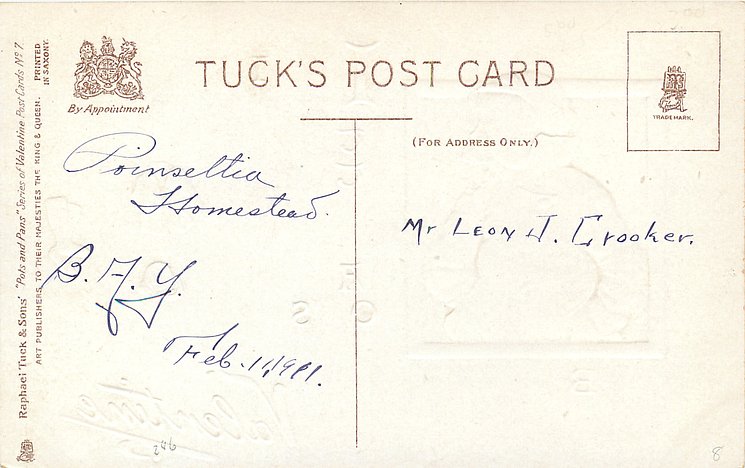 TUCK'S POST CARD
By Appointment
TRADE MARK.
(FOR ADDRESS ONLY.)
Raphael Tuck & Sons' "Pots and Pans" Series of Valentine Post Cards No 7.
ART PUBLISHERS TO THEIR MAJESTIES THE KING & QUEEN.
PRINTED
IN SAXONY.
Poinsettia
Homestead.
B. F. Y.
Feb. 11, 1911.
Mr LEON J. Crooker.
Valentine
8